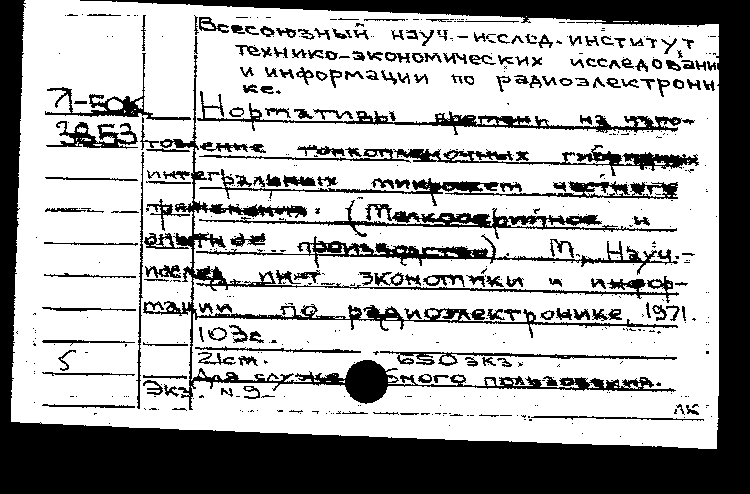 Всесоюзный науч.-исслед. институт
технико-экономических исследовани
и информации по радиоэлектрони-
ке.
Л-50К Нормативы времени на изго-
3853
товление тонкопленочных гибридных
интегральных микросхем частного
применения. (Мелкосерийное и
опытное производство). М., Науч.-
исслед. ин-т экономики и инфор-
мации по радиоэлектронике, 1971.
103с.
5 21см. 650 экз.
Для служебного пользования.
Экз. N 9
ЛК